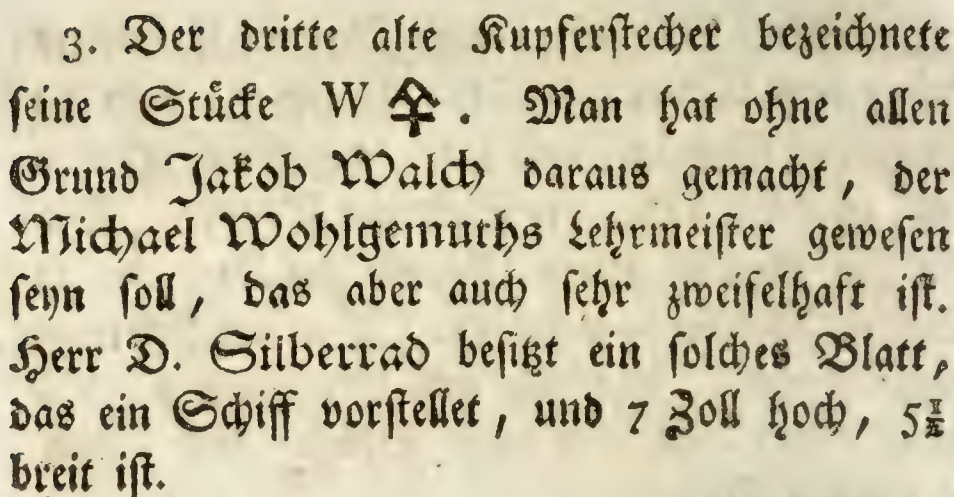 3. Der dritte alte Kupferſtecher bezeichnete
ſeine Stuͤcke W . Man hat ohne allen
Grund Jakob Walch daraus gemacht, der
Michael Wohlgemuths Lehrmeiſter geweſen
ſeyn ſoll, das aber auch ſehr zweifelhaft iſt.
Herr D. Silberrad beſitzt ein ſolches Blatt,
das ein Schiff vorſtellet, und 7 Zoll hoch, 5½
breit iſt.